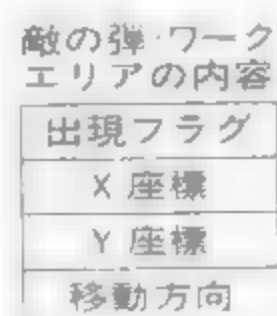 敵の弾・ワーク
エリアの内容
出現フラグ
X座標
Y座標
移動方向